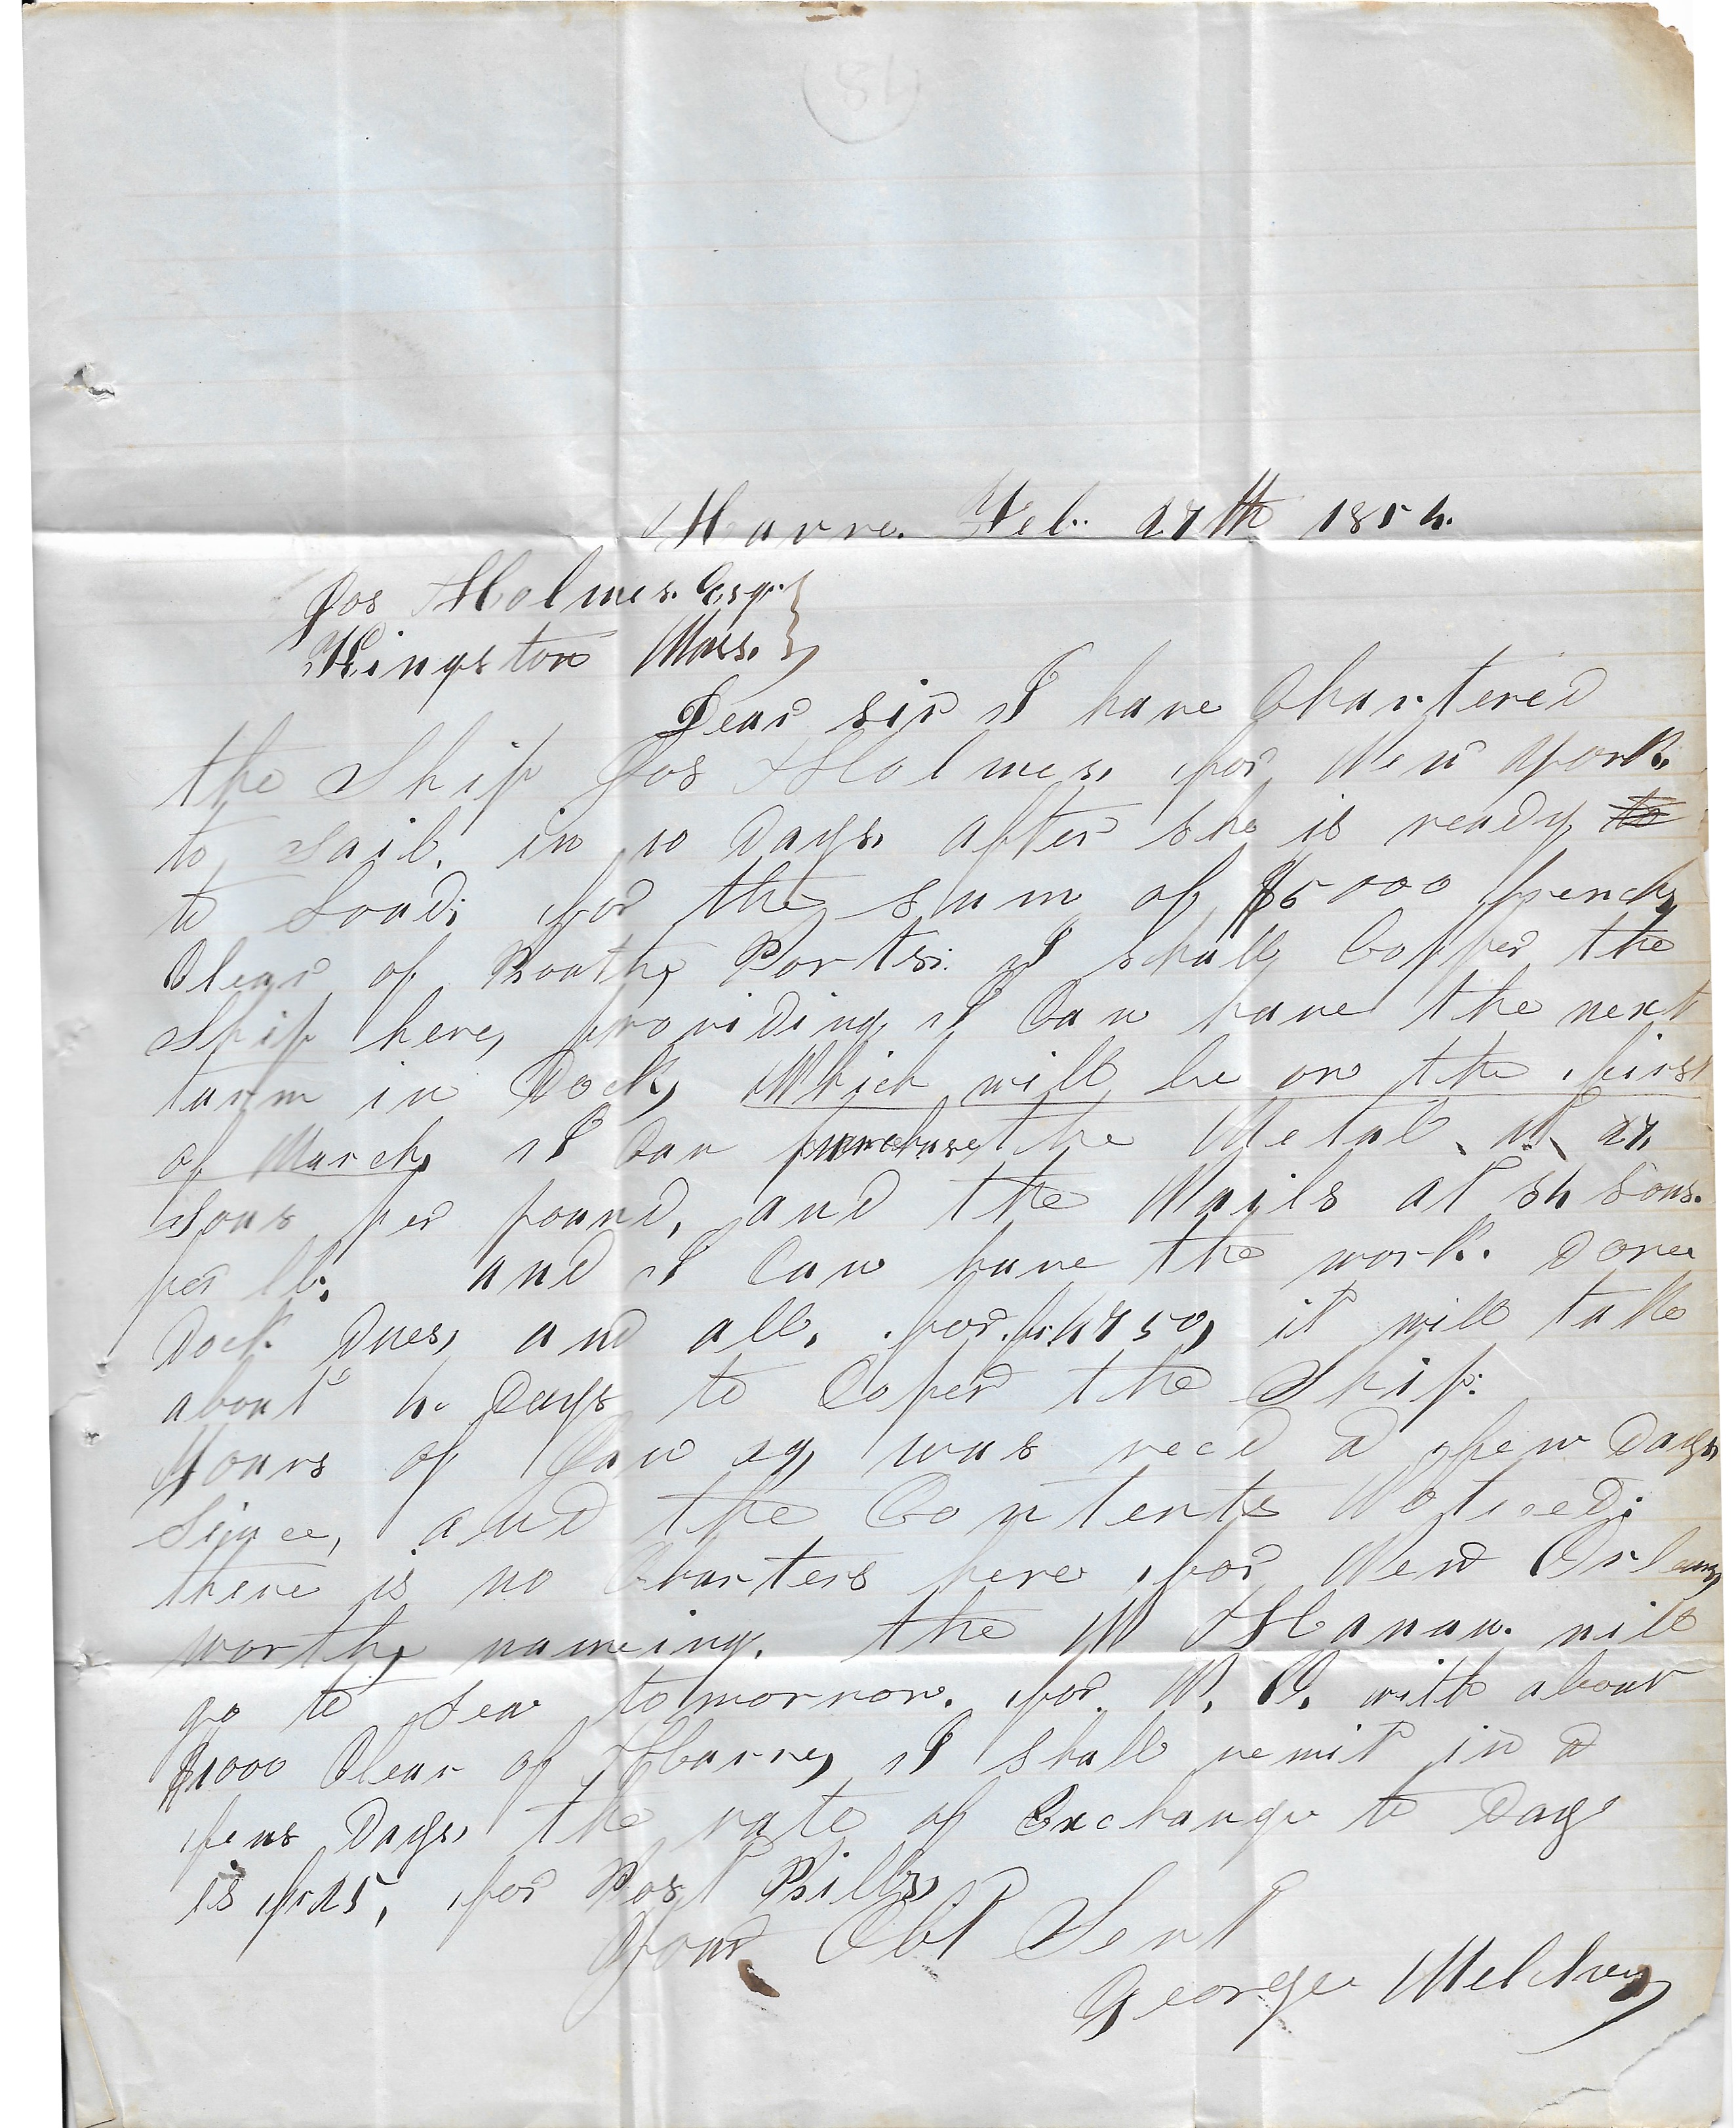 18
Havre. Feb. 27th 1854.
Jos Holmes. Esqr.
Kingston Mass.
Dear sir I have Chartered
the Ship Jos Holmes, for New York.
to sail, in 10 Days, after she is ready to
to Load; for the sum of $5000 french,
Clear of Boath, Ports; I shall Copper the
Ship here, providing, I Can have the next
turm in Dock, Which will be on the first
of March, I Can purchase the Metal, at 27,
Sous per pound, and the Nails at 34 Sous.
per lb; and I Can have the work. Done
Dock Dues, and all, for fr. 4750, it will take
about 4. Days to Coper the Ship:
Yours of Jan 29, was recd a few Days,
Since, and the Contents Noticed;
there is no Charters here for New Orleans,
worth, nameing. the M Hanau. will
go to Sea tomorrow. for. N. O. with about
$1000 Clear of Havre, I shall remit in a
few Days, the rate of Exchange to Day
is fr. 25, for Post Bills,
Your Obt Servt
George